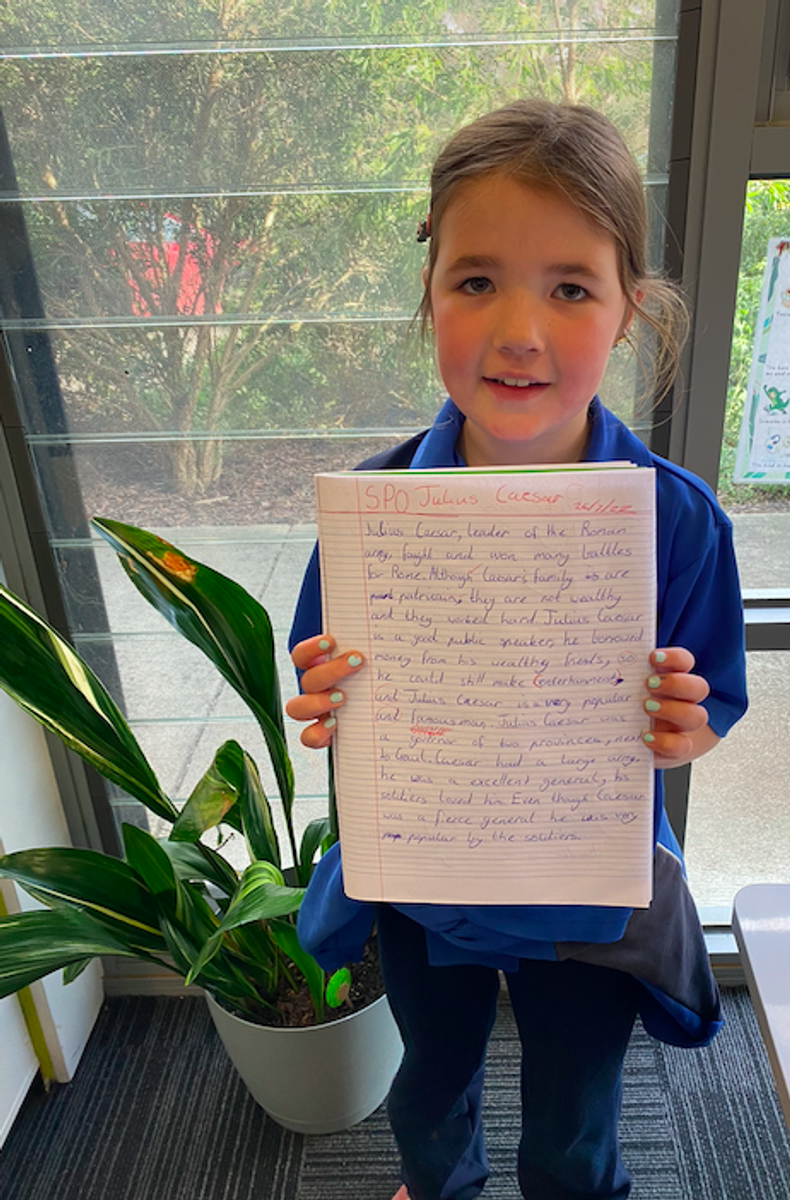 SPO Julius Caesar 26/7/22
Julius Caesar, leader of the Roman
army, fought and won many battles
for Rome. Although Caesar's family is are
patricians, they are not wealthy
and they worked hard Julius Caesar
is a good public speaker, he borrowed
money from his wealthy friends, so
he could still make (entertainment)
and Julius Caesar is a very popular
and famous man. Julius Caesar was
a governor of two provinces, next
to Gaul. Caesar had a large army,
he was a excellent general, his
soldiers loved him. Even though Caesar
was a fierce general he was very
popular by the soldiers.